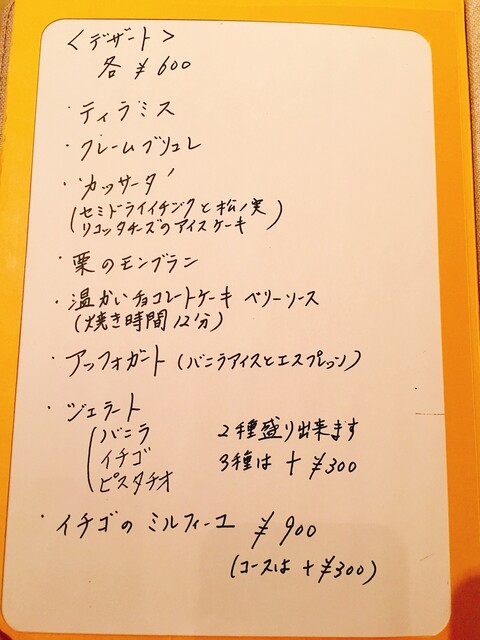 <デザート>
各 ¥600
・ティラミス
・クレームブリュレ
・"カッサータ"
(セミドライイチジクと松ノ実
リコッタチーズのアイスケーキ)
・栗のモンブラン
・温かいチョコレートケーキ ベリーソース
(焼き時間12分)
・アッフォガート(バニラアイスとエスプレッソ)
・ジェラート
(バニラ 2種盛り出来ます
イチゴ 3種は+¥300
ピスタチオ
・イチゴのミルフィーユ ¥900
(コースは+¥300)